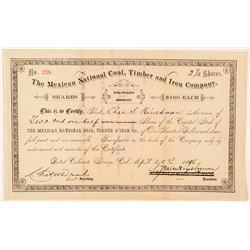 No. 278
2½ Shares.
The Mexican National Coal, Timber and Iron Company.
SHARES
COLORADO
MEXICO
$100 EACH
This is to Certify, That Chas. S. Hinchman is owner of
Two and one half Shares of the Capital Stock of
THE MEXICAN NATIONAL COAL, TIMBER & IRON CO., of One Hundred Dollars each,
full paid and non-assessable, Transferable on the books of the Company in person or by
Attorney on surrender of this Certificate.
Dated Colorado Springs, April 22nd
Secretary
President